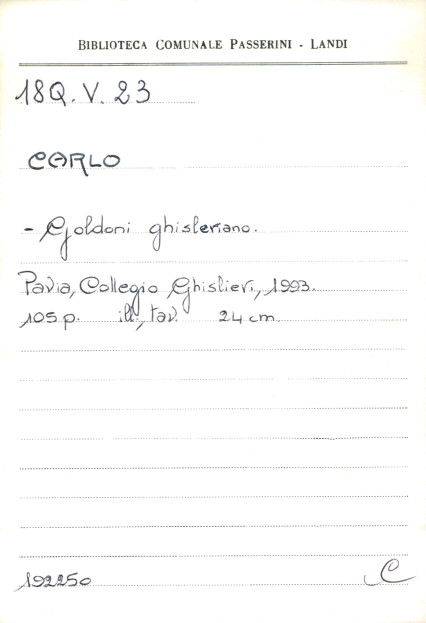 BIBLIOTECA COMUNALE PASSERINI - LANDI
18Q. V. 23
CARLO
- Goldoni ghisleriano.
Pavia, Collegio Ghislieri, 1993.
105 p. ill., tav. 24 cm.
192250 C